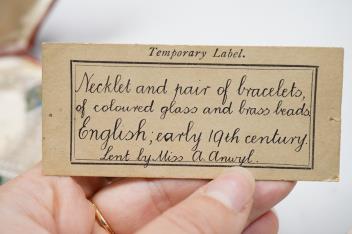 Temporary Label.
Necklet and pair of bracelets,
of coloured glass and brass beads.
English; early 19th century.
Lent by Miss A. Anwyl.